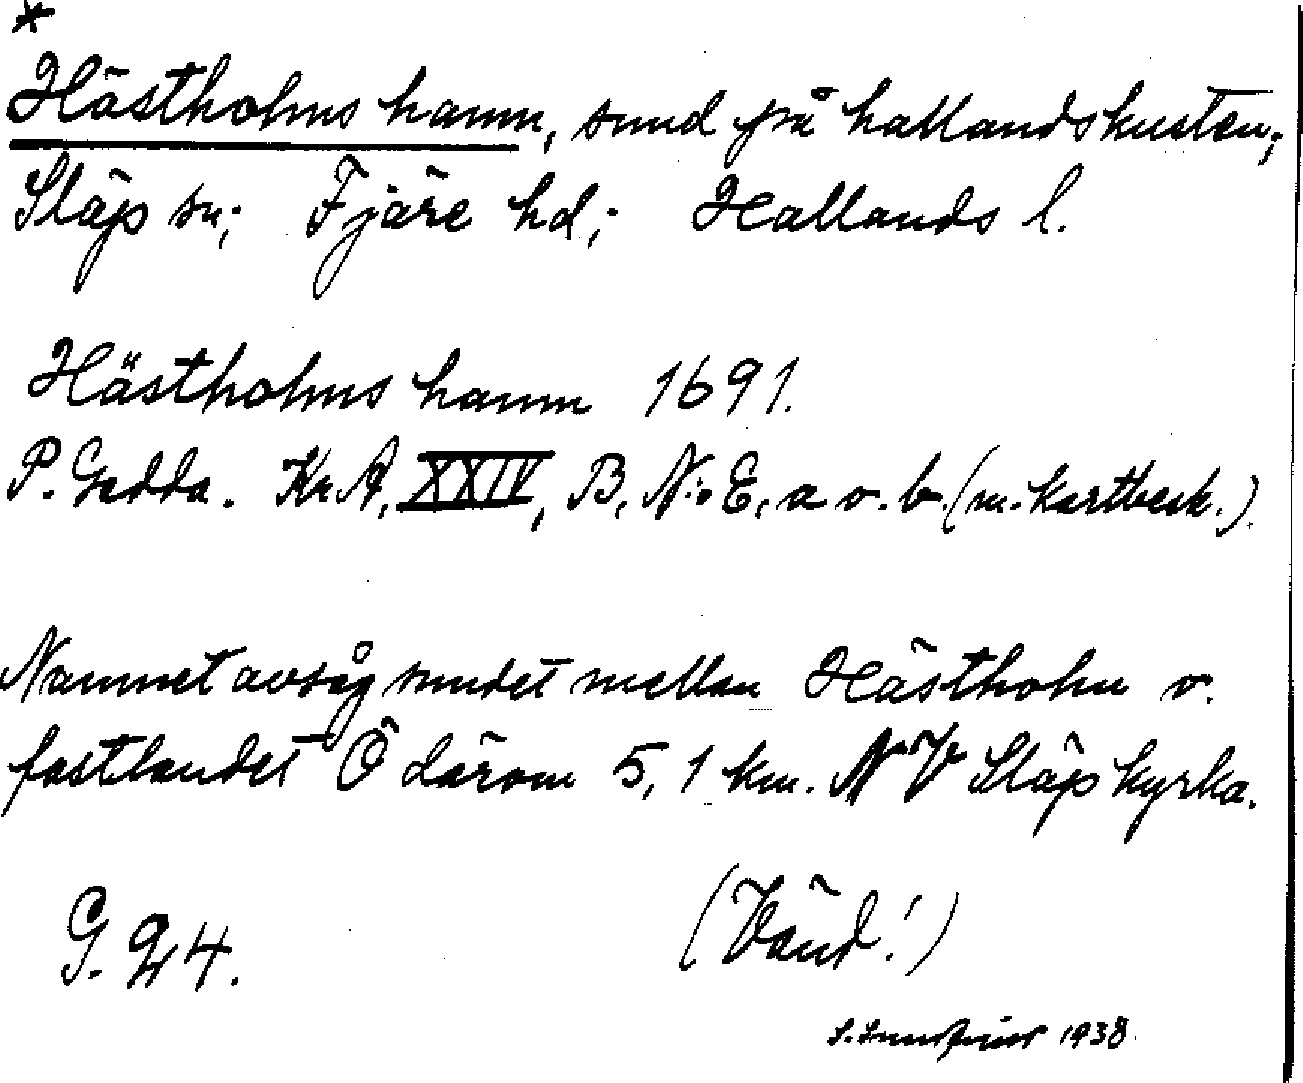 *
Hästholms hamn, sund på hallandskusten;
Släp sn; Fjäre hd; Hallands l.
Hästholms hamn 1691.
P. Gedda. Kr A, XXIV, B, N:o E, a o. b. (m. kartbesk.).
Namnet avsåg sundet mellan Hästholm o.
fastlandet Ö därom 5,1 km. NV Släp kyrka.
G. 24.
(Vänd!)
1938